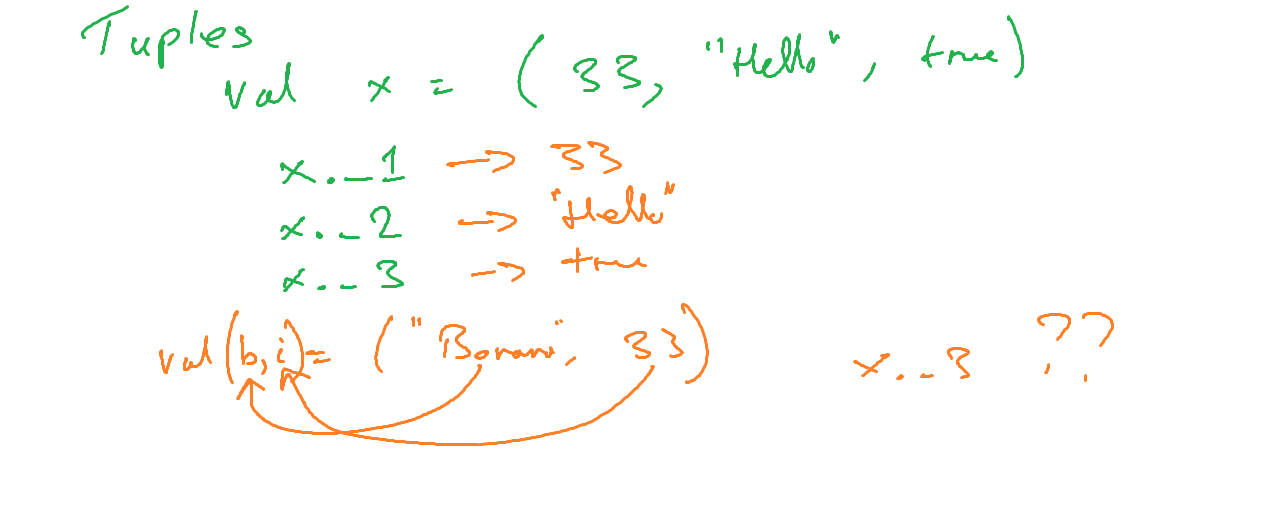 Tuples
val x = (33, "Hello", true)
x._1 → 33
x._2 → "Hello"
x._3 → true
val (b,i) = ("Borani", 33)
x._3 ??